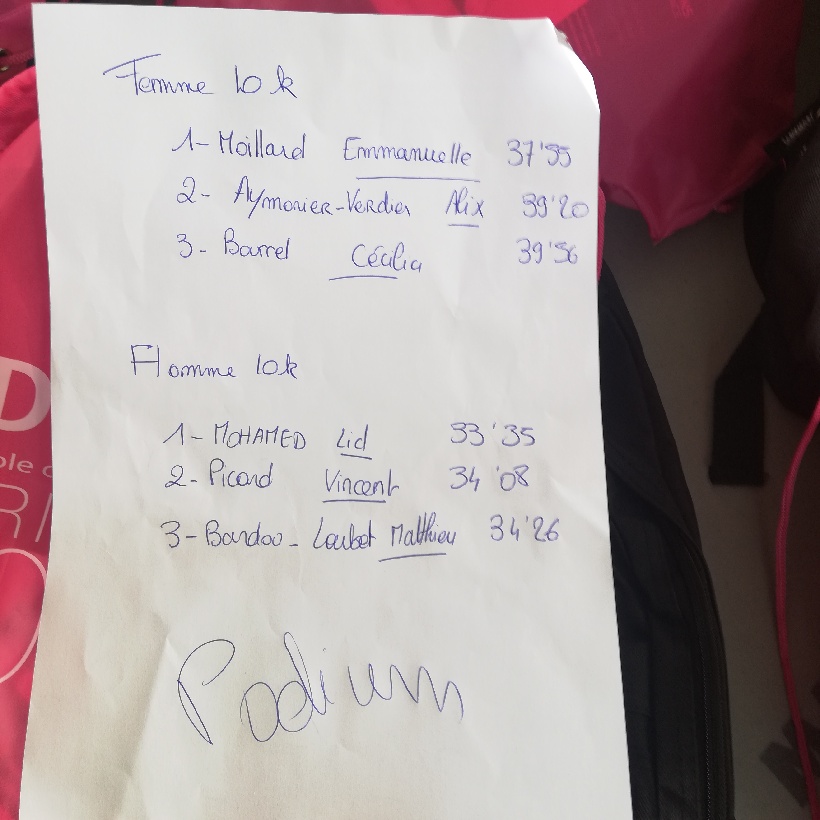 Femme 10k
1- Moillard Emmanuelle 37'35
2- Aymonier-Verdier Alix 39'20
3- Barrel Cécilia 39'56
Homme 10k
1- MOHAMED Lid 33'35
2- Picard Vincent 34'08
3- Bardoo-Loubet Matthieu 34'26
Podium
D